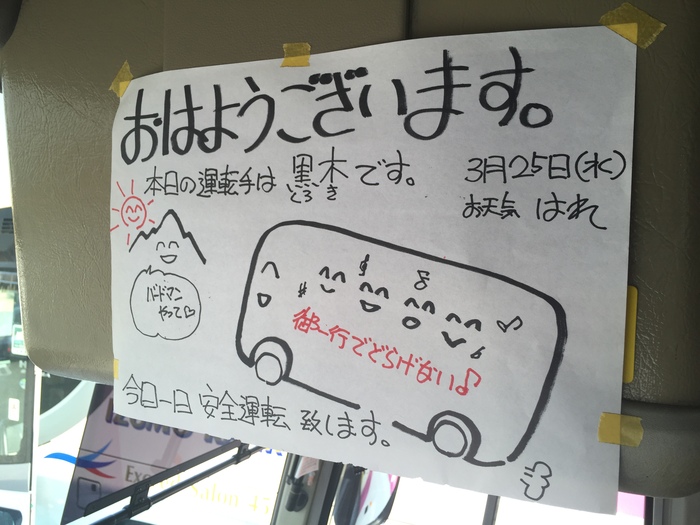 おはようございます。
本日の運転手は 黒木 です。
くろ き
3月25日(水)
お天気 はれ
バードマン
やって♡
御一行でどらげない♪
今日一日 安全運転 致します。